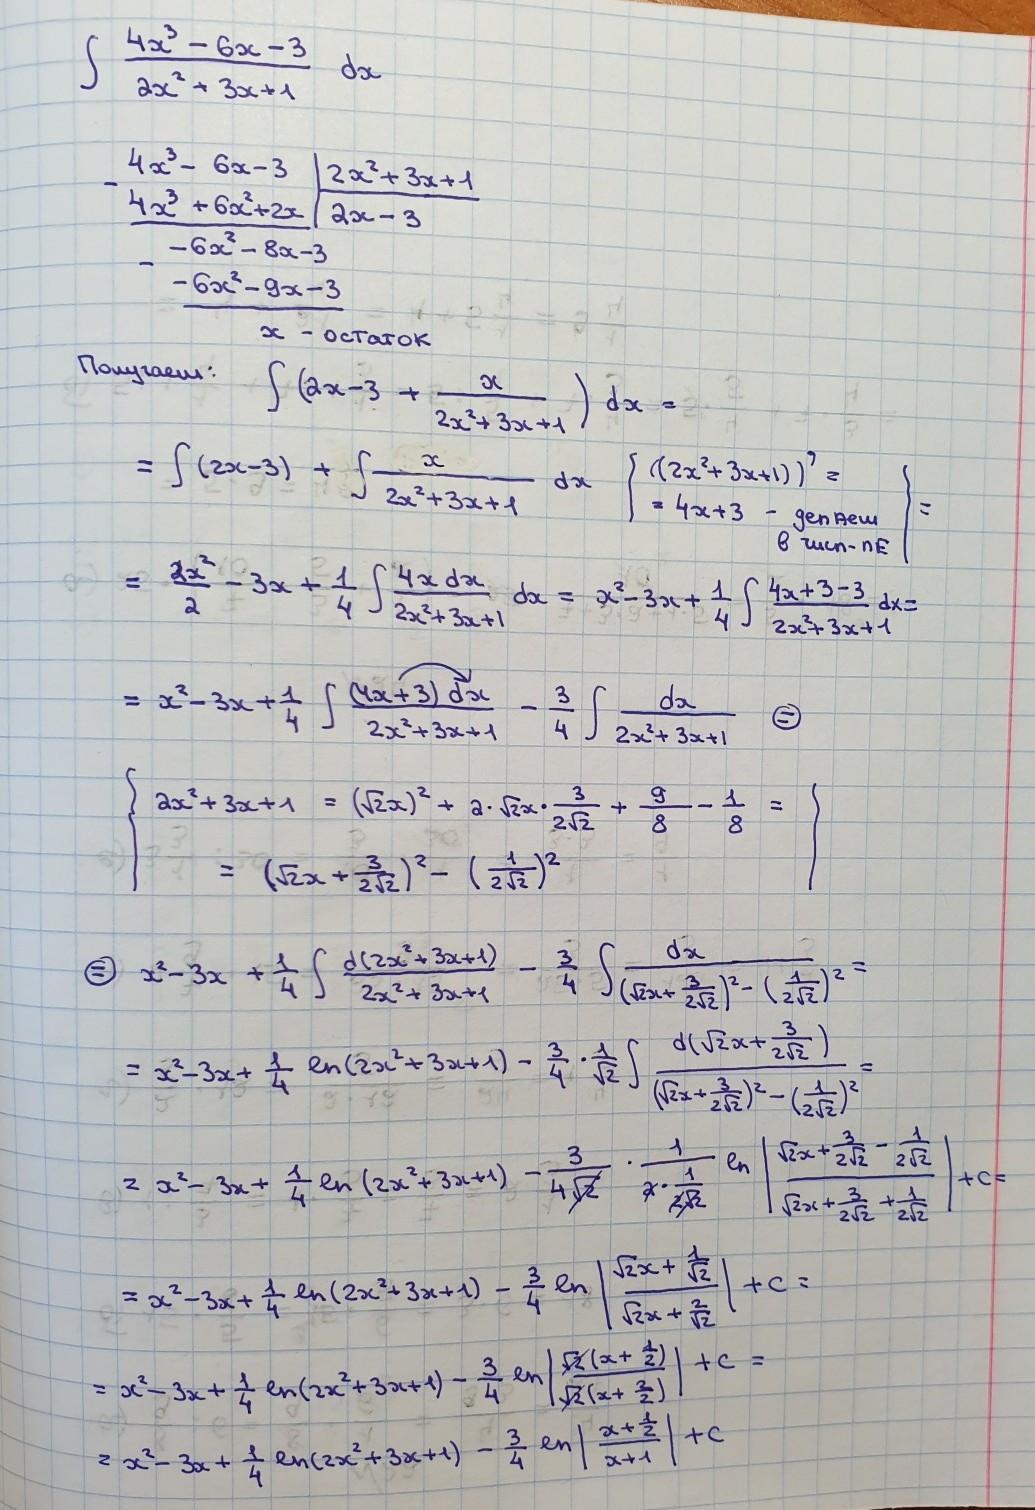 ∫ (4x³ − 6x − 3)/(2x² + 3x + 1) dx
4x³ − 6x − 3 | 2x² + 3x + 1
− 4x³ + 6x² + 2x | 2x − 3
−6x² − 8x − 3
− −6x² − 9x − 3
x − остаток
Получаем: ∫ (2x − 3 + x/(2x² + 3x + 1)) dx =
= ∫ (2x − 3) + ∫ x/(2x² + 3x + 1) dx { ((2x² + 3x + 1))' =
= 4x + 3 − делаем
в числ-ле } =
= 2x²/2 − 3x + 1/4 ∫ (4x dx)/(2x² + 3x + 1) dx = x² − 3x + 1/4 ∫ (4x + 3 − 3)/(2x² + 3x + 1) dx =
= x² − 3x + 1/4 ∫ ((4x + 3) dx)/(2x² + 3x + 1) − 3/4 ∫ dx/(2x² + 3x + 1) ⊜
{ 2x² + 3x + 1 = (√2x)² + 2·√2x·3/(2√2) + 9/8 − 1/8 =
= (√2x + 3/(2√2))² − (1/(2√2))² }
⊜ x² − 3x + 1/4 ∫ d(2x² + 3x + 1)/(2x² + 3x + 1) − 3/4 ∫ dx/((√2x + 3/(2√2))² − (1/(2√2))²) =
= x² − 3x + 1/4 ln(2x² + 3x + 1) − 3/4 · 1/√2 ∫ d(√2x + 3/(2√2))/((√2x + 3/(2√2))² − (1/(2√2))²) =
= x² − 3x + 1/4 ln(2x² + 3x + 1) − 3/(4√2) · 1/(2·1/(2√2)) ln |(√2x + 3/(2√2) − 1/(2√2))/(√2x + 3/(2√2) + 1/(2√2))| + c =
= x² − 3x + 1/4 ln(2x² + 3x + 1) − 3/4 ln |(√2x + 1/√2)/(√2x + 2/√2)| + c =
= x² − 3x + 1/4 ln(2x² + 3x + 1) − 3/4 ln |(√2(x + 1/2))/(√2(x + 2/2))| + c =
= x² − 3x + 1/4 ln(2x² + 3x + 1) − 3/4 ln |(x + 1/2)/(x + 1)| + c